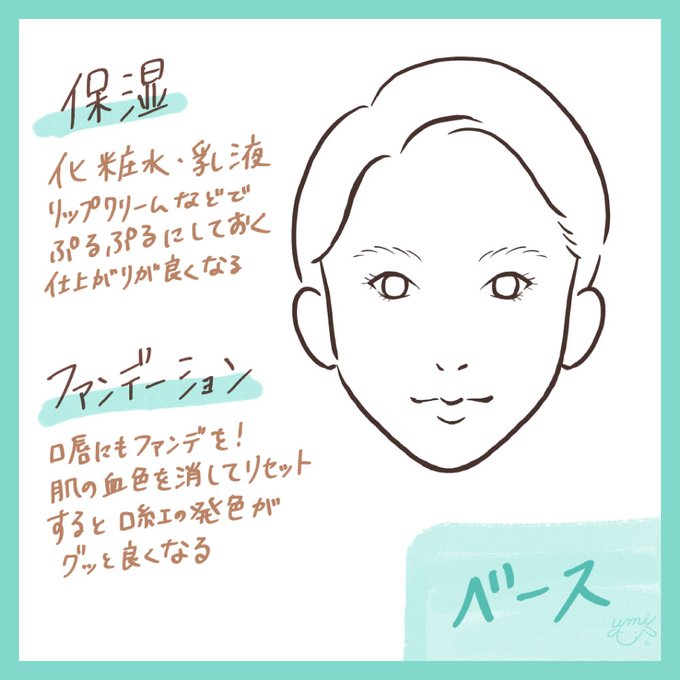 保湿
化粧水・乳液
リップクリームなどで
ぷるぷるにしておく
仕上がりが良くなる
ファンデーション
口唇にもファンデを!
肌の血色を消してリセット
すると口紅の発色が
グッと良くなる
ベース
umi